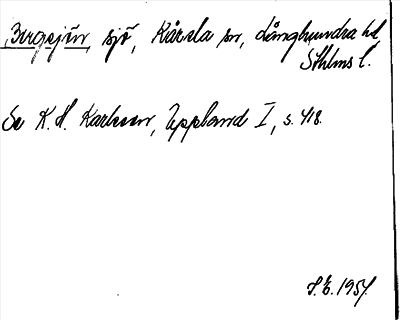 Bergsjön, sjö, Kårsta sn, Långhundra hd,
Sthlms l.
Se K. H. Karlsson, Uppland I, s. 418.
1954.